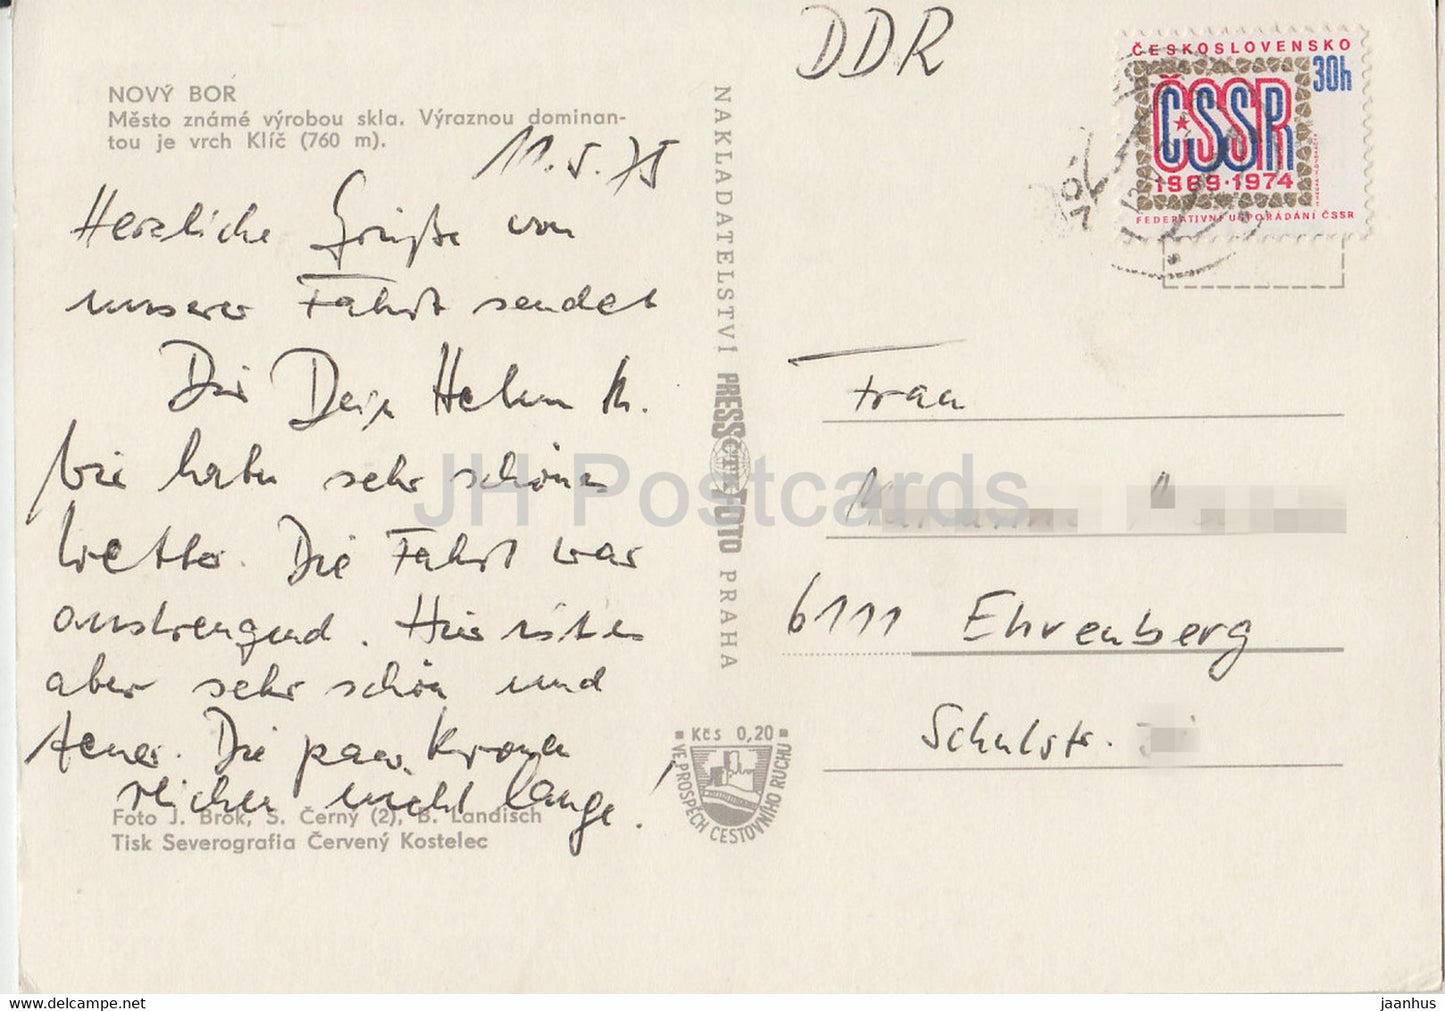 DDR
ČESKOSLOVENSKO
30h
ČSSR
1969·1974
FEDERATIVNÍ USPOŘÁDÁNÍ ČSSR
NOVÝ BOR
Město známé výrobou skla. Výraznou dominan-
tou je vrch Klíč (760 m).
11.5.75
Herzliche Grüße von
unserer Fahrt sendet
Dir Dein Helm
Wir haben sehr schönes
Wetter. Die Fahrt war
anstrengend. Hier ist es
aber sehr schön und
teuer. Die paar Kronen
reichen nicht lange.
Foto J. Brok, S. Černý (2), B. Landisch
Tisk Severografia Červený Kostelec
NAKLADATELSTVÍ PRESSFOTO PRAHA
ČTK
Kčs 0,20
VE PROSPĚCH CESTOVNÍHO RUCHU
Frau
6111 Ehrenberg
Schulstr.
JH Postcards
www.delcampe.net
jaanhus